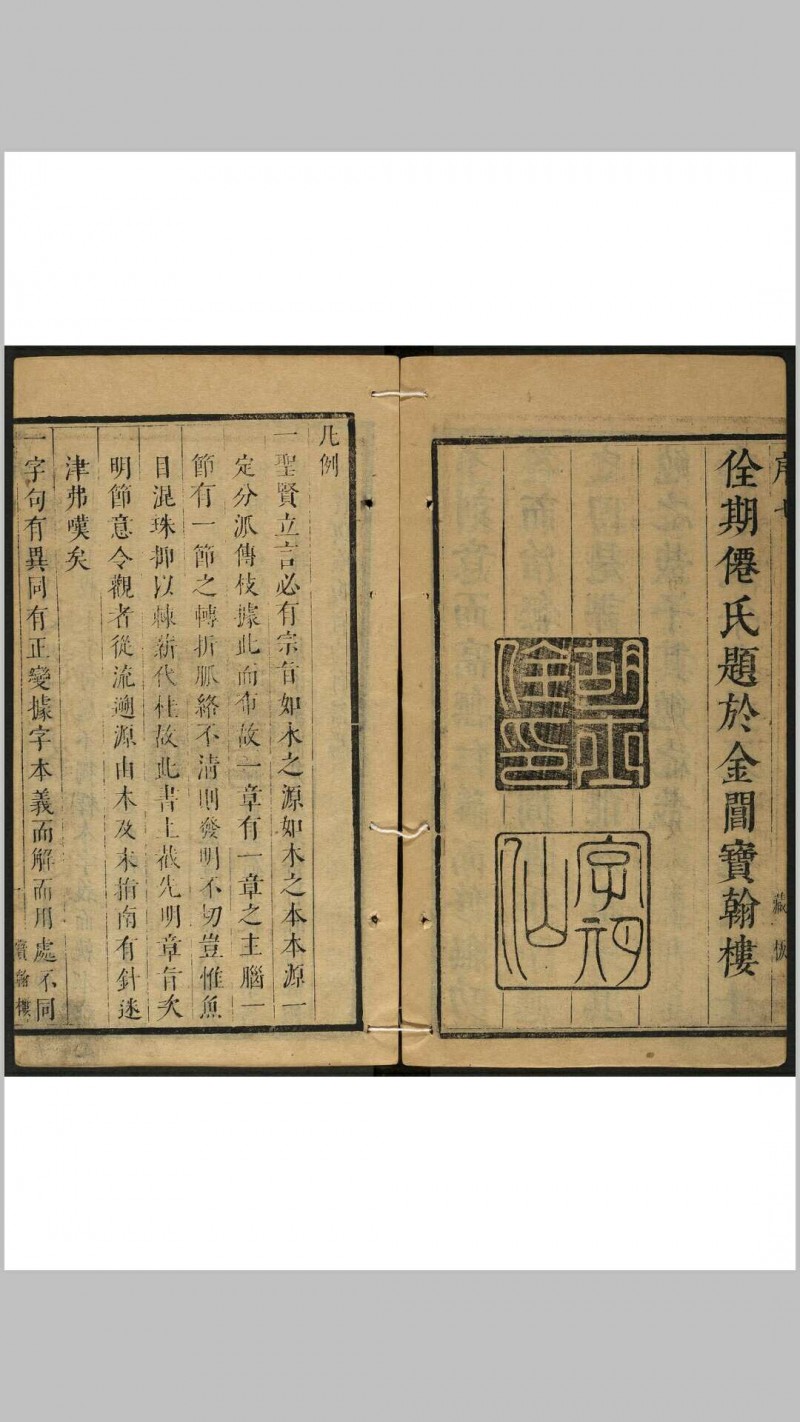 序七
藏板
佺期僊氏題於金閶寶翰樓
凡例
一聖賢立言必有宗旨如水之源如木之本本源一
定分派傳枝據此而布故一章有一章之主腦一
節有一節之轉折脈絡不清則發明不切豈惟魚
目混珠抑以棘薪代桂故此書上截先明章旨次
明節意令觀者從流遡源由本及末指南有針迷
津弗嘆矣
一字句有異同有正變據字本義而解而用處不同
寶翰樓